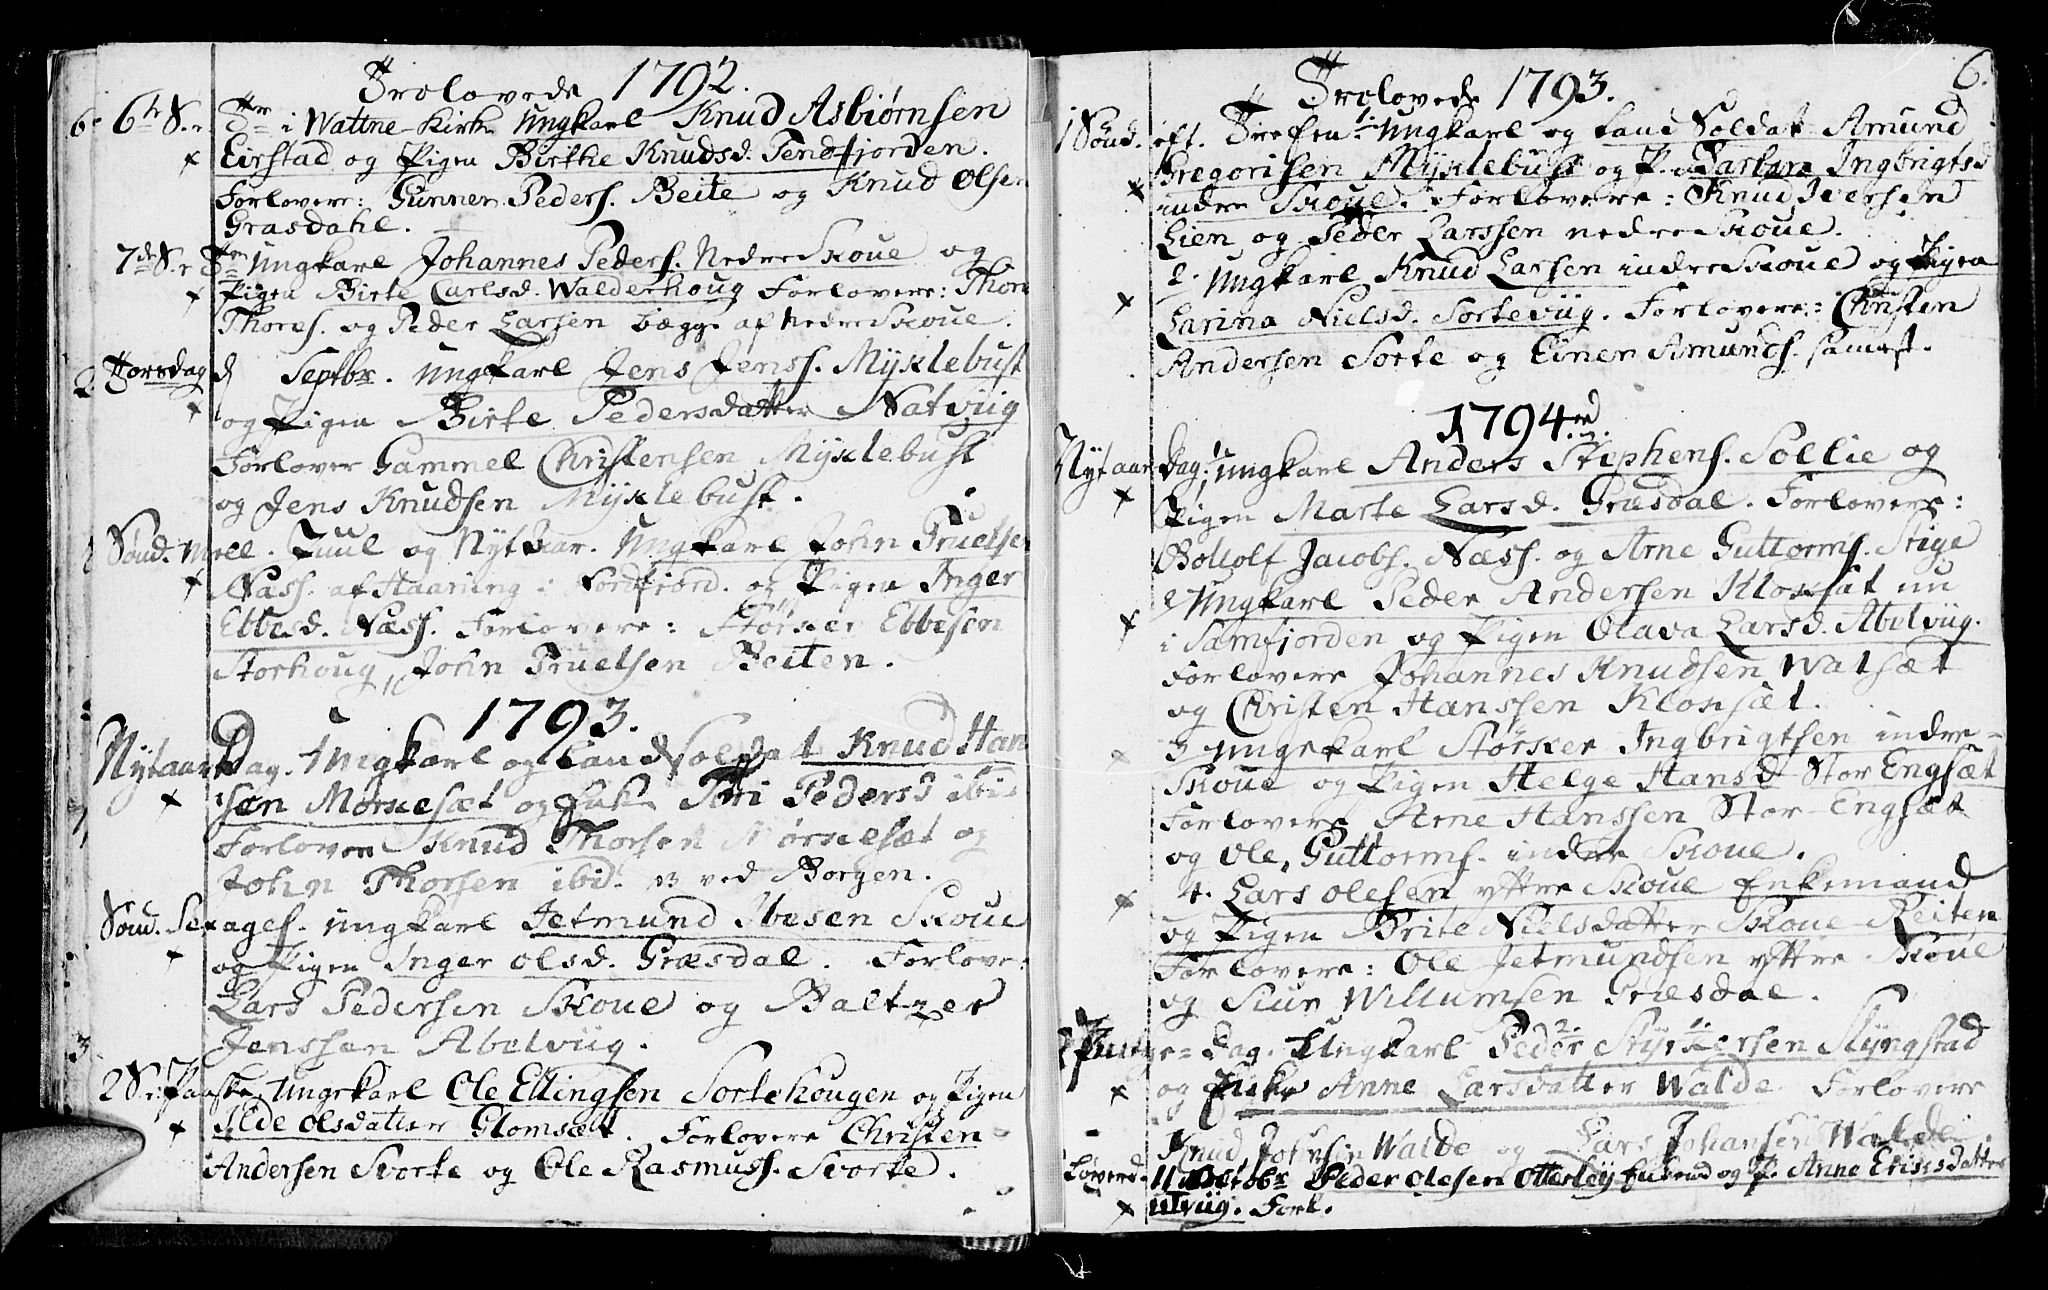 Trolovede 1792.
6te S. e. Tr. i Wattne Kirke Ungkarl Knud Asbiørnsen
Eirstad og Pigen Birthe Knudsd. Tendfjorden.
Forlovere: Gunner Peders. Beite og Knud Olsen
Grasdahl.
7de S. e. Tr. Ungkarl Johannes Peders. Nedre Skoue og
Pigen Birte Carlsd. Walderhoug Forlovere: Thore
Thores. og Peder Larsen begge af Nedre Skoue.
Torsdag d Septbr. Ungkarl Jens Jenss. Myklebust
og Pigen Birte Pedersdatter Natviig
Forlover Gammel Christensen Myklebust
og Jens Knudsen Myklebust.
Sønd. Mell. Juul og Nyt Aar. Ungkarl John Truelsen
Næss. af Haaring i Nordfiord. og Pigen Inger
Ebbesd. Næss. Forlovere: Størker Ebbesen
Storhoug, John Truelsen Beiten.
1793.
Nytaars Dag. Ungkarl og Land Soldat Knud Han
sen Morkesæt og Enke Peders d ibid
Forlovere Knud Thorsen Mørkesæt og
John Thorsen ibid. ved Borgen.
Sønd. Sexages. Ungkarl Jetmund Ibesen Skoue
og Pigen Inger Olsd. Græsdal. Forlove:
Lars Pedersen Skoue og Baltzer
Jenssen Abelviig.
2 S. e. Paaske Ungekarl Ole Ellingsen Sortehougen og Pigen
Ilde Olsdatter Glomsæt. Forlovere Christen
Andersen Svorte og Ole Rasmuss. Svorte.
6.
Trolovede 1793.
1 Sønd. eft. Trefen 1. Ungkarl og Land Soldat Amund
Gregorisen Myklebust og P. Barbara Ingbrigtsd
indre Skoue. Forlovere: Knud Iversen
Lien og Peder Larssen nedre Skoue.
2. Ungkarl Knud Larsen indre Skoue og Pigen
Larina Nielsd. Sorteviig. Forlovere: Christen
Andersen Sorte og Einer Amunds. samest.
1794.
Nytaars Dag. 1 Ungkarl Anders Stephens. Sollie og
Pigen Marte Larsd. Græsdal. Forlovere:
Botolf Jacobs. Næss. og Arne Guttorms. Stige
2 Ungkarl Peder Andersen Kloksæt nu
i Samfjorden og Pigen Olava Larsd. Abelviig.
Forlovere Johannes Knudsen Watsæt
og Christen Hanssen Kloksæt.
3 Ungekarl Størker Ingbrigtsen indre
Skoue og Pigen Helge Hansd Stor Engsæt
Forlovere Arne Hanssen Stor-Engsæt
og Ole Guttorms. indre Skoue.
4. Lars Olesen yttre Skoue Enkemand
og Pigen Brite Nielsdatter Skoue Reiten
Forlovere: Ole Jetmundsen yttre Skoue
og Siur Willumsen Græsdal.
2 Pintze-Dag. Ungkarl Peder Styrkersen Slyngstad
og Enke Anne Larsdatter Walde Forlovere
Knud Johnsen Walde og Lars Johansen Walde.
Løverd. 11 Octobr Peder Olesen Otterley Enkemd og P. Anne Ericsdatter
utviig. Forl.